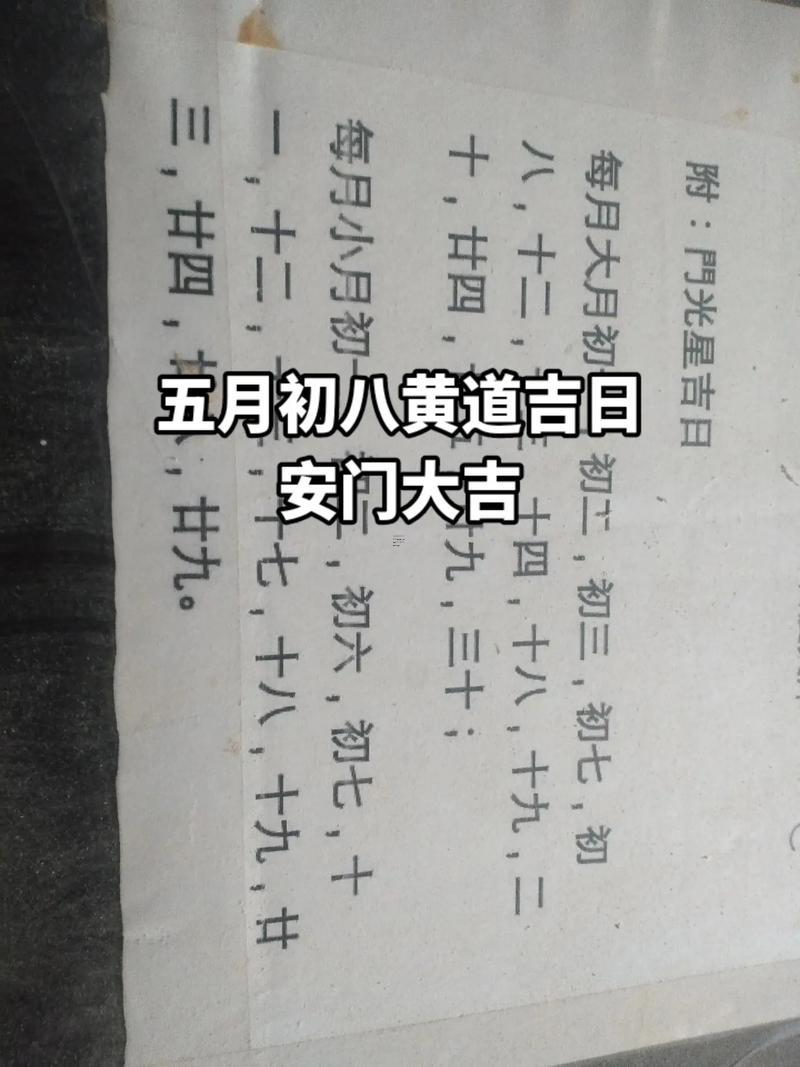 五月初八黄道吉日
安门大吉
附：門光星吉日
每月大月初 初二，初三，初七，初
八，十二， 十四，十八，十九，二
十，廿四， 九，三十；
每月小月初 ，初六，初七，十
一，十二， 十七，十八，十九，廿
三，廿四， ，廿九。